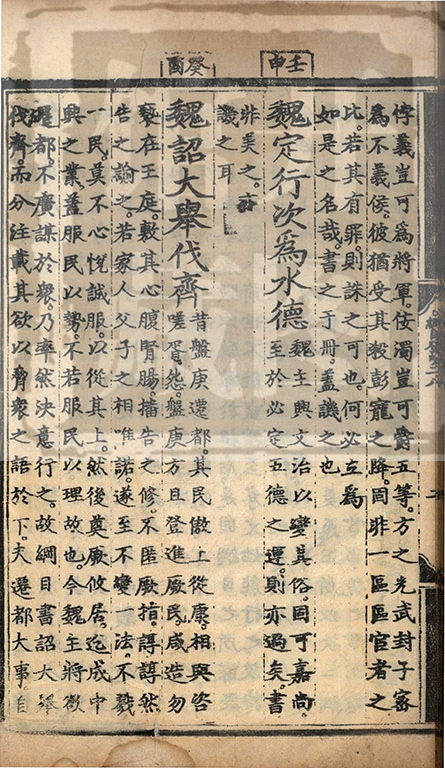 壬申
癸酉
悖義豈可爲將軍佞濁豈可爵五等方之光武封子密
爲不義侯彼猶受其殺彭寵之降固非一區區官者之
比若其有罪則誅之可也何必立爲
如是之名哉書之于册蓋譏之也
魏定行次爲水德
魏主興文治以變其俗固可嘉尚
至於必定五德之運則亦過矣書
非美之
譏之耳
魏詔大舉伐齊
昔盤庚遷都其民傲上從康相與咨
嗟胥怨盤庚方且登進厥民咸造勿
褻在王庭敷其心腹腎腸播告之修不匿厥指諄諄然
告之諭之若家人父子之相唯諾遂至不變法不戮
一民莫不心悅誠服以從其上然後奠厥攸居迄成中
興之業蓋服民以勢不若服民以理故也今魏主將徵
遷都不廣謀於衆乃率然決意行之故綱目書詔大舉
伐齊而分注載其欲以脅衆之語於下夫遷都大事自